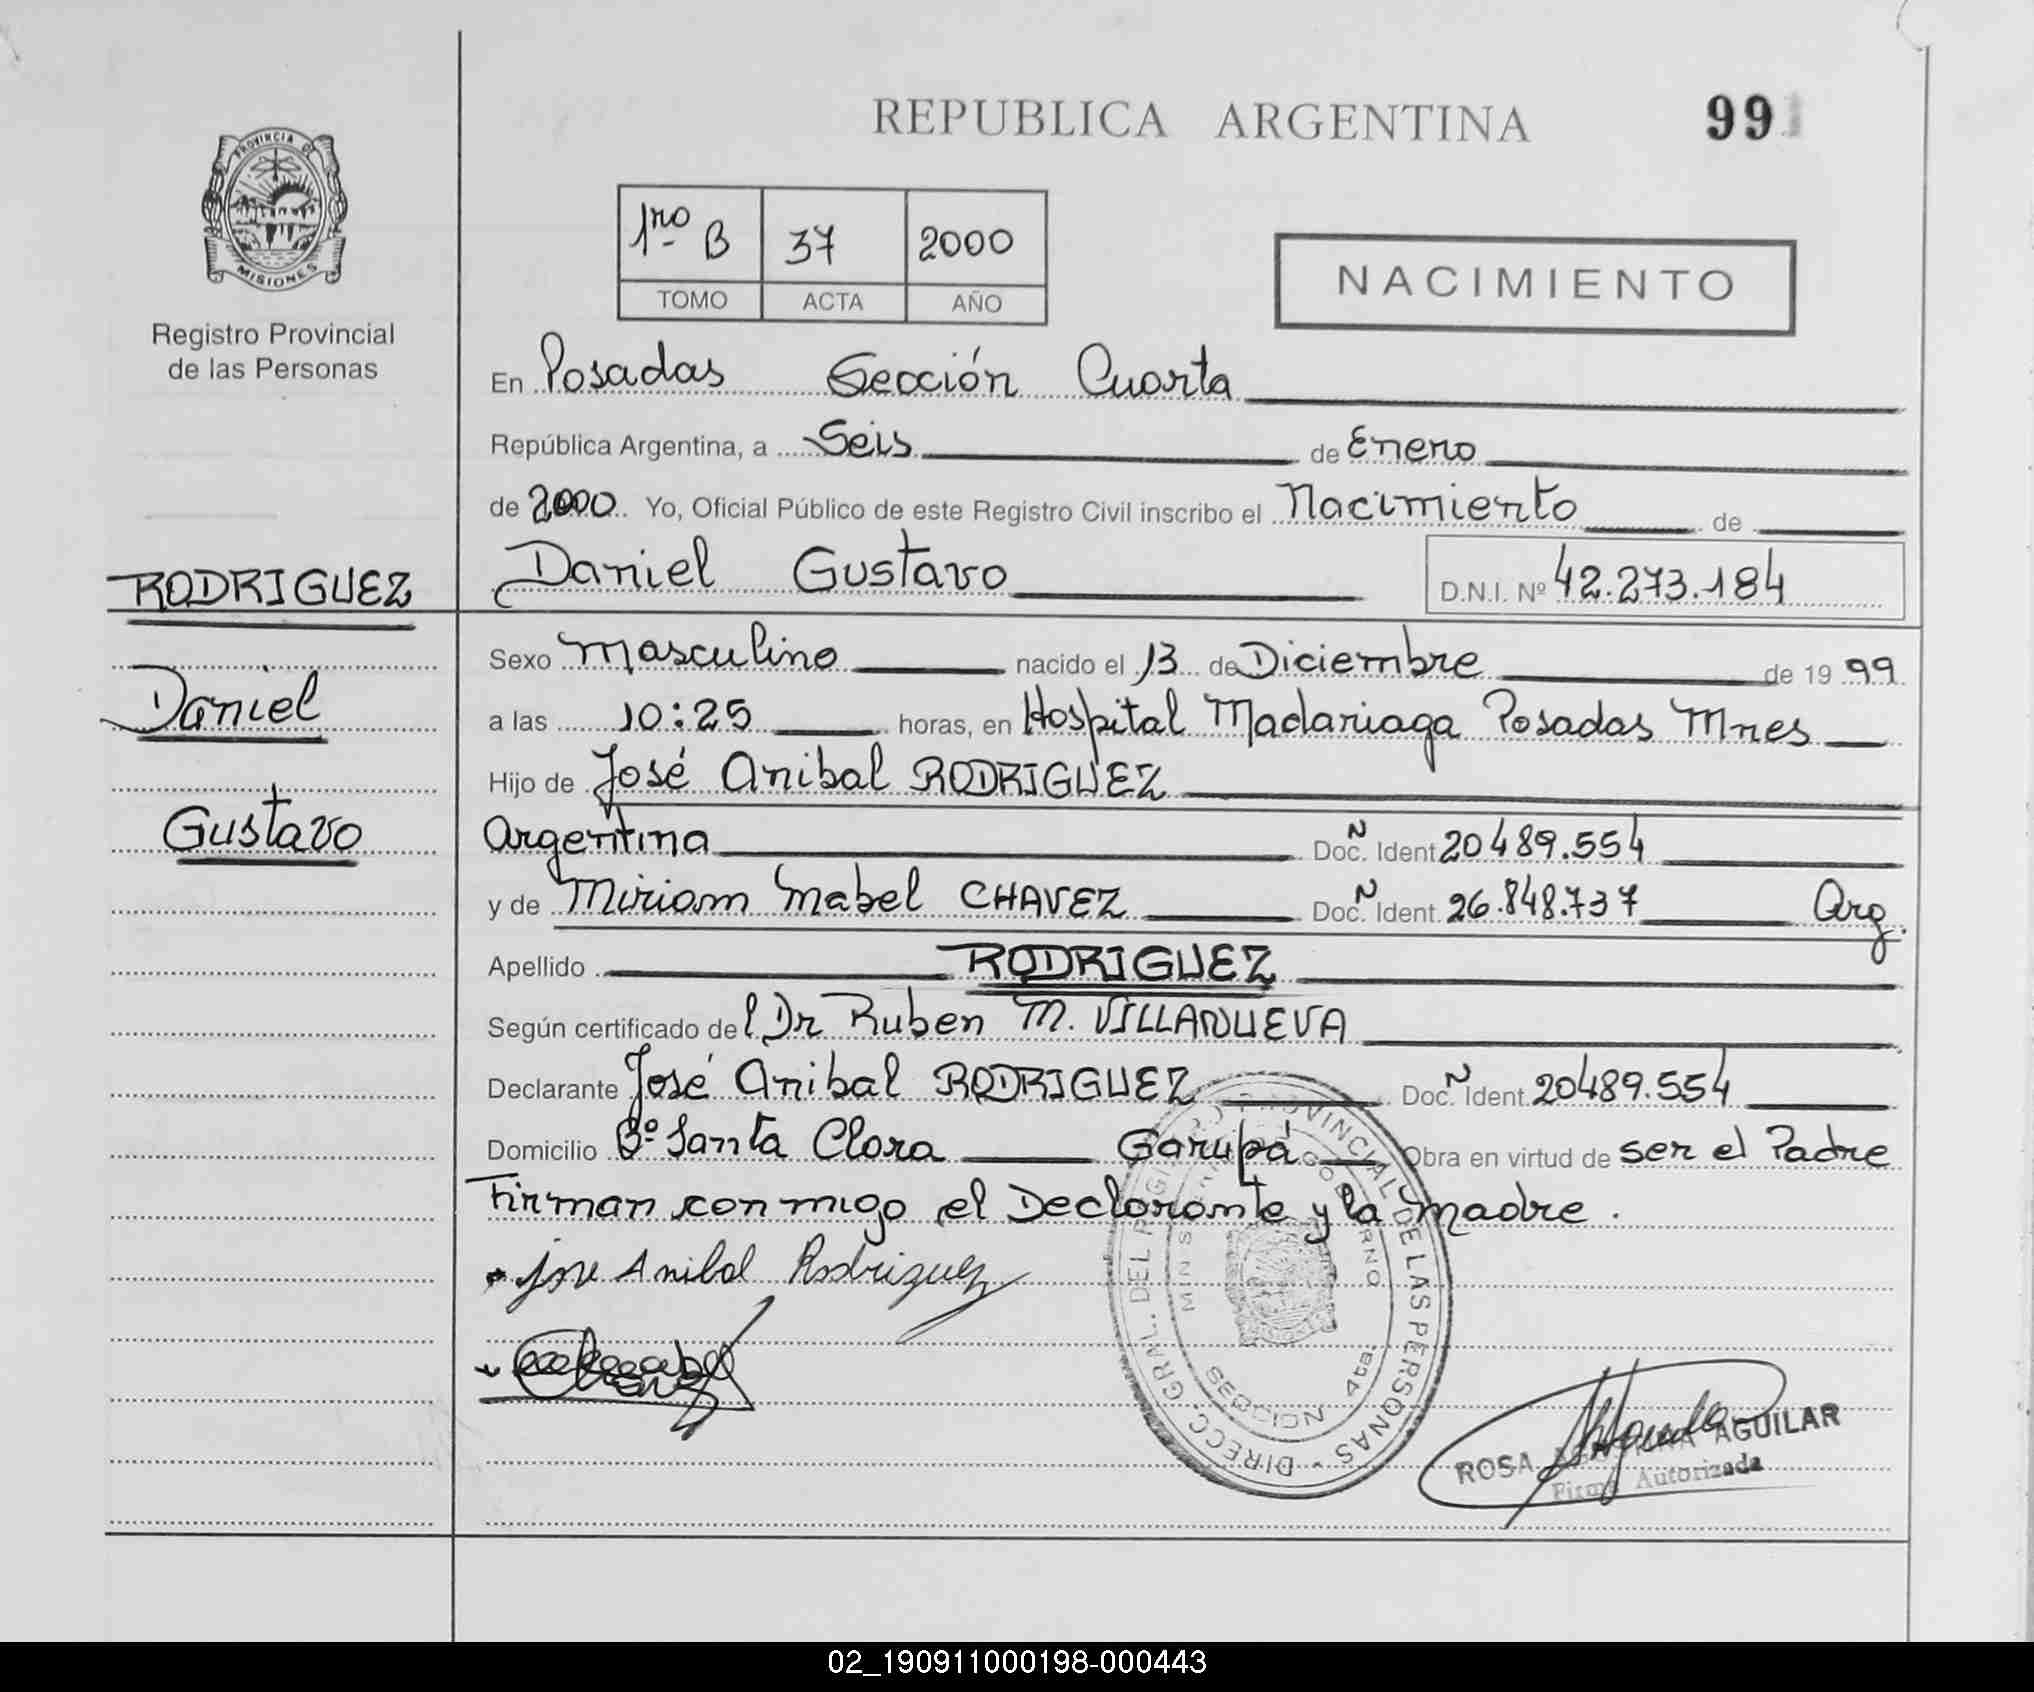 REPUBLICA ARGENTINA
99
PROVINCIA DE
MISIONES
Registro Provincial
de las Personas
1ro B 37 2000
TOMO ACTA AÑO
NACIMIENTO
En Posadas Sección Cuarta
República Argentina, a Seis de Enero
de 2000 Yo, Oficial Público de este Registro Civil inscribo el Nacimiento de
RODRIGUEZ
Daniel
Gustavo
Daniel Gustavo D.N.I. Nº 42.273.184
Sexo Masculino nacido el 13 de Diciembre de 1999
a las 10:25 horas, en Hospital Madariaga Posadas Mnes
Hijo de José Anibal RODRIGUEZ
Argentina Doc. Ident 20489.554
y de Miriam Mabel CHAVEZ Doc. Ident. 26.848.737 Arg.
Apellido RODRIGUEZ
Según certificado del Dr Ruben M. VILLANUEVA
Declarante José Anibal RODRIGUEZ Doc. Ident. 20489.554
Domicilio Bº Santa Clara Garupá Obra en virtud de ser el Padre
Firman conmigo el Declarante y la madre.
Jose Anibal Rodriguez
DIRECC. GRAL. DEL REGISTRO PROVINCIAL DE LAS PERSONAS
SECCION 4ta.
ROSA AGUILAR
Firma Autorizada
02_190911000198-000443